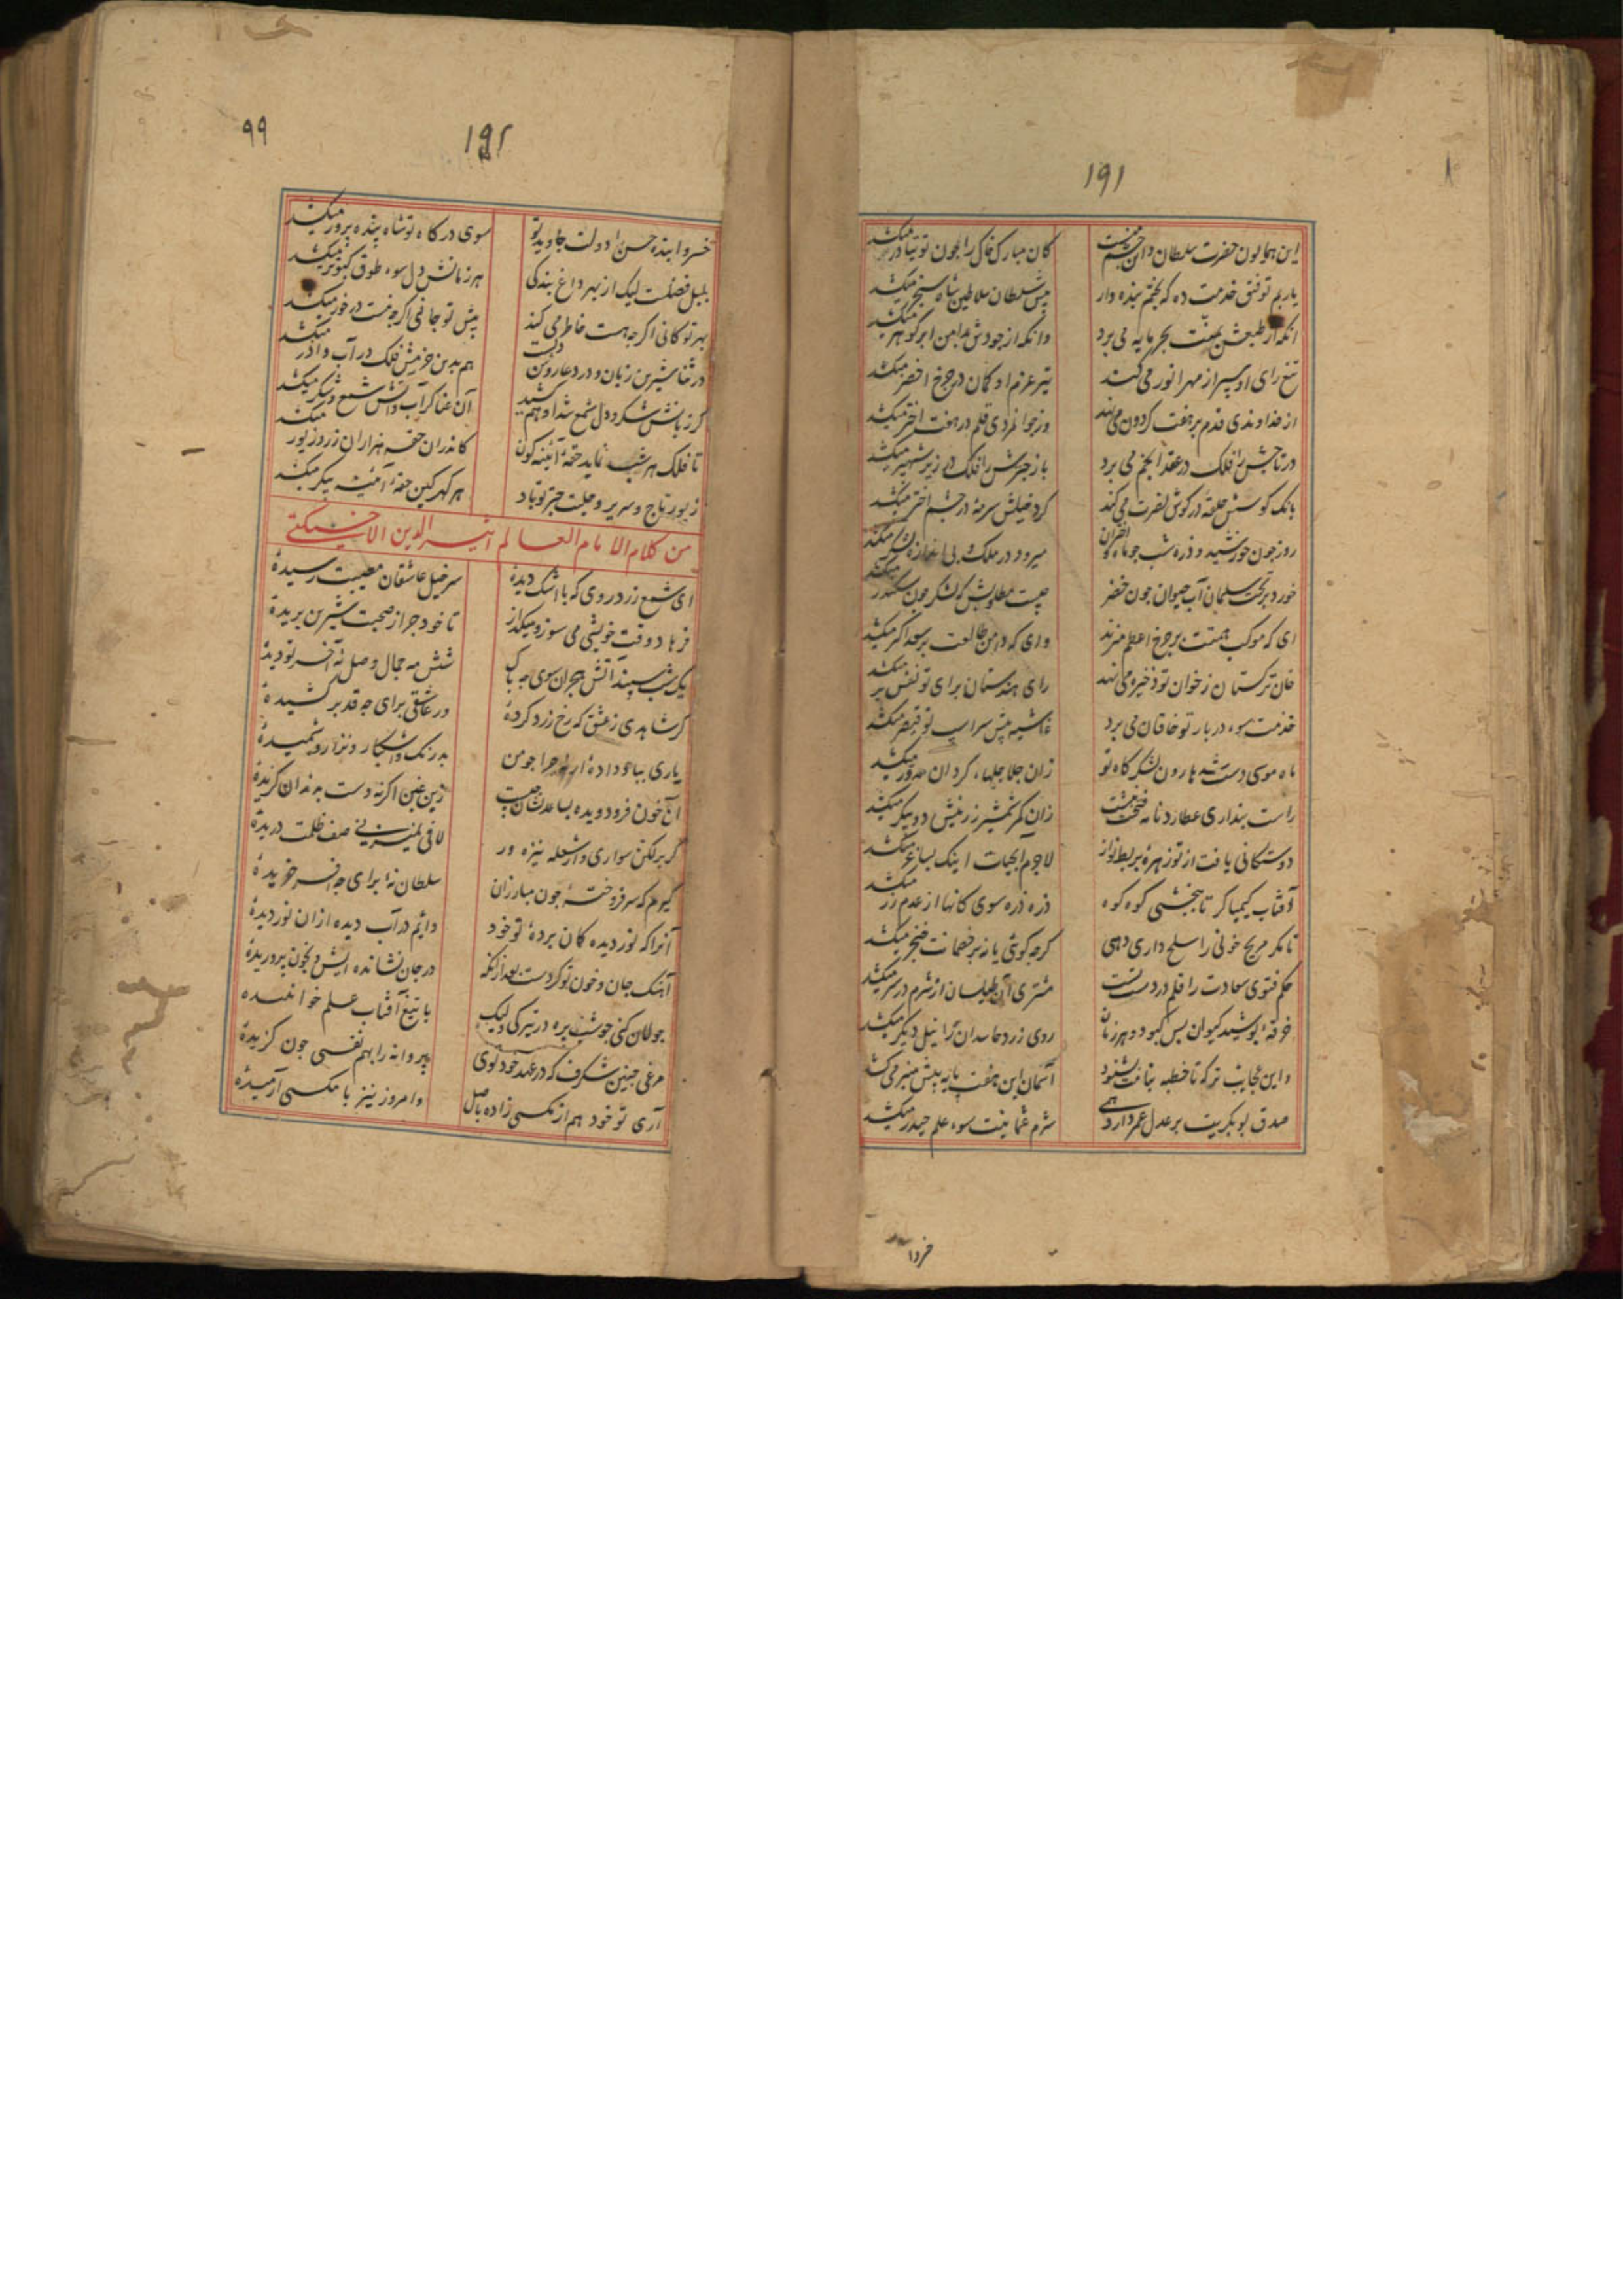 ۱۹۱
این همایون حضرت سلطان و این چشم منست
کان مبارک خاک را چون توتیا در میکشد
یا ربم توفیق خدمت ده که بختم بنده وار
پیش سلطان سلاطین شاه سنجر میکشد
آنکه از طبعش بمنت بحر مایه می برد
وانکه از جودش بدامن ابر گوهر میکشد
تیغ رای او سپر از مهر انور می کند
تیر عزم او کمان در چرخ اخضر میکشد
از خداوندی قدم بر هفت گردون می نهد
وز جوانمردی قلم در هفت اختر میکشد
در تاجش را فلک در عقد انجم می برد
باز چترش را فلک در زیر شهپر میکشد
بانک کوسش حلقه در کوش نصرت می کند
کرد خیلش سرمه در چشم اختر میکشد
روز چون خورشید و ذره شب چو ماه و اختران
میرود در ملک و بی اندازه لشکر میکشد
خورد بر تخت سلیمان آب حیوان چون خضر
چیست مطلوبش که لشکر چون سکندر میکشد
ای که موکب همتت بر چرخ اعظم میزند
وی که دامن طالعت بر سعد اکبر میکشد
خان ترکستان ز خوان تو ذخیره می نهد
رای هندستان برای تو نفس بر میکشد
خدمت سوء دربار تو خاقان می برد
غاشیه پیش سراپ تو قیصر میکشد
ماه موسی دست شد هارون لشکر کاه تو
زان جلاجلهاء کردان میکشد
راست پنداری عطارد نامه فتحت نبشت
زان کمر شمشیر زرینش دو پیکر میکشد
دوستکانی یافت از تو زهره بربط نواز
لاجرم آبحیات اینک بساغر میکشد
آفتاب کیمیاگر تا ببخشی کوه کوه
ذره ذره سوی کانها از عدم زر میکشد
تا مکر مریخ خونی را سلح داری دهی
کرچه کوئی یا زبر خصمانت خنجر میکشد
حکم فتوی سعادت را قلم در دست تست
مشتری آن طیلسان از شرم در سر میکشد
خرقه پوشید کیوان بس کبود و هر زمان
روی زرد حاسدان را نیل دیگر میکشد
واین عجایب تر که تا خطبه بنامت بشنود
آسمان این هفت پایه پیش منبر می کشد
صدق بوبکریت بر عدل عمر دارد همی
شرم عثمانیت سوء علم حیدر میکشد
۹۹
۱۹۲
خسروا بنده حسن را دولت جاوید تو
سوی درکاه تو شاه بنده پرور میکشد
بلبل فضلست لیک از بهر داغ بندکی
هر زمانش دل سوء طوق کبوتر میکشد
بهر تو کانی اکر چه هست خاطر می کند
پیش تو جانی اکر چه نیست در خور میکشد
در ثنا شیرین زبان و در دعا روشن دلست
هم بدین جرمش فلک در آب و آذر میکشد
کر زبانش شکر و دل شمع شد او هم کشید
آن عنا کز آب و آتش شمع و شکر میکشد
تا فلک هر شب نماید حقه آئینه کون
کاندران حقه هزاران زر و زیور میکشد
زیور تاج و سریر و حلیت چتر تو باد
هر کهر کین حقه آئینه پیکر میکشد
من کلام الامام العالم اثیر الدین الاخسیکتی
ای شمع زرد روی که با اشک دیدۀ
سر خیل عاشقان مصیبت رسیدۀ
فرهاد وقت خویشی می سوز و میکداز
تا خود چرا ز صحبت شیرین بریدۀ
یک شب سپند آتش هجران شوی چه باک
شش مه جمال وصل نه آخر تو دیدۀ
کر شاهدی ز عشق که رخ زرد کردۀ
ور عاشقی برای چه قد بر کشیدۀ
یاری بباد دادۀ ار نه چرا چو من
بدرنک و اشکبار و نزار و خمیدۀ
آن خون فرود ویده بساعد نشان چیست
زین غبن اکر نه دست بدندان کزیدۀ
کر بر لکن سواری و از شعله نیزه ور
لافی نمیزنی صف ظلمت دریدۀ
کیرم که سر فروخته چون مبارزان
سلطان نه برای چه افسر خریدۀ
آنرا که نور دیده کمان بردۀ تو خود
دایم در آب دیده ازان نور دیدۀ
آهنک جان و خون تو کردست بعد ازانکه
در جان نشانده ایش و بخون پروریدۀ
جولان کنی چو شب بره در تیرکی ولیک
با تیغ آفتاب علم خوابنیده
مرغی چنین شکرف که در عهد خود توی
پروانه را بهم نفسی چون کزیدۀ
آری تو خود هم از مکسی زاده باصل
وامروز نیز با مکسی آرمیدۀ